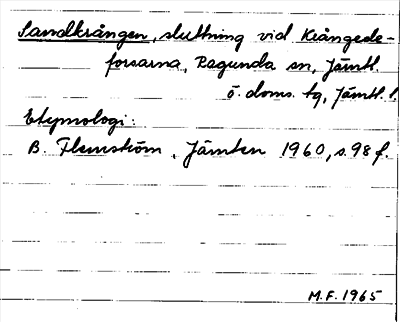 Sandkrången, sluttning vid Krångede-
forsarna, Ragunda sn, Jämtl.
ö. doms. tg, Jämtl. l.
Etymologi:
B. Flemström, Jämten 1960, s. 98 f.
M.F. 1965